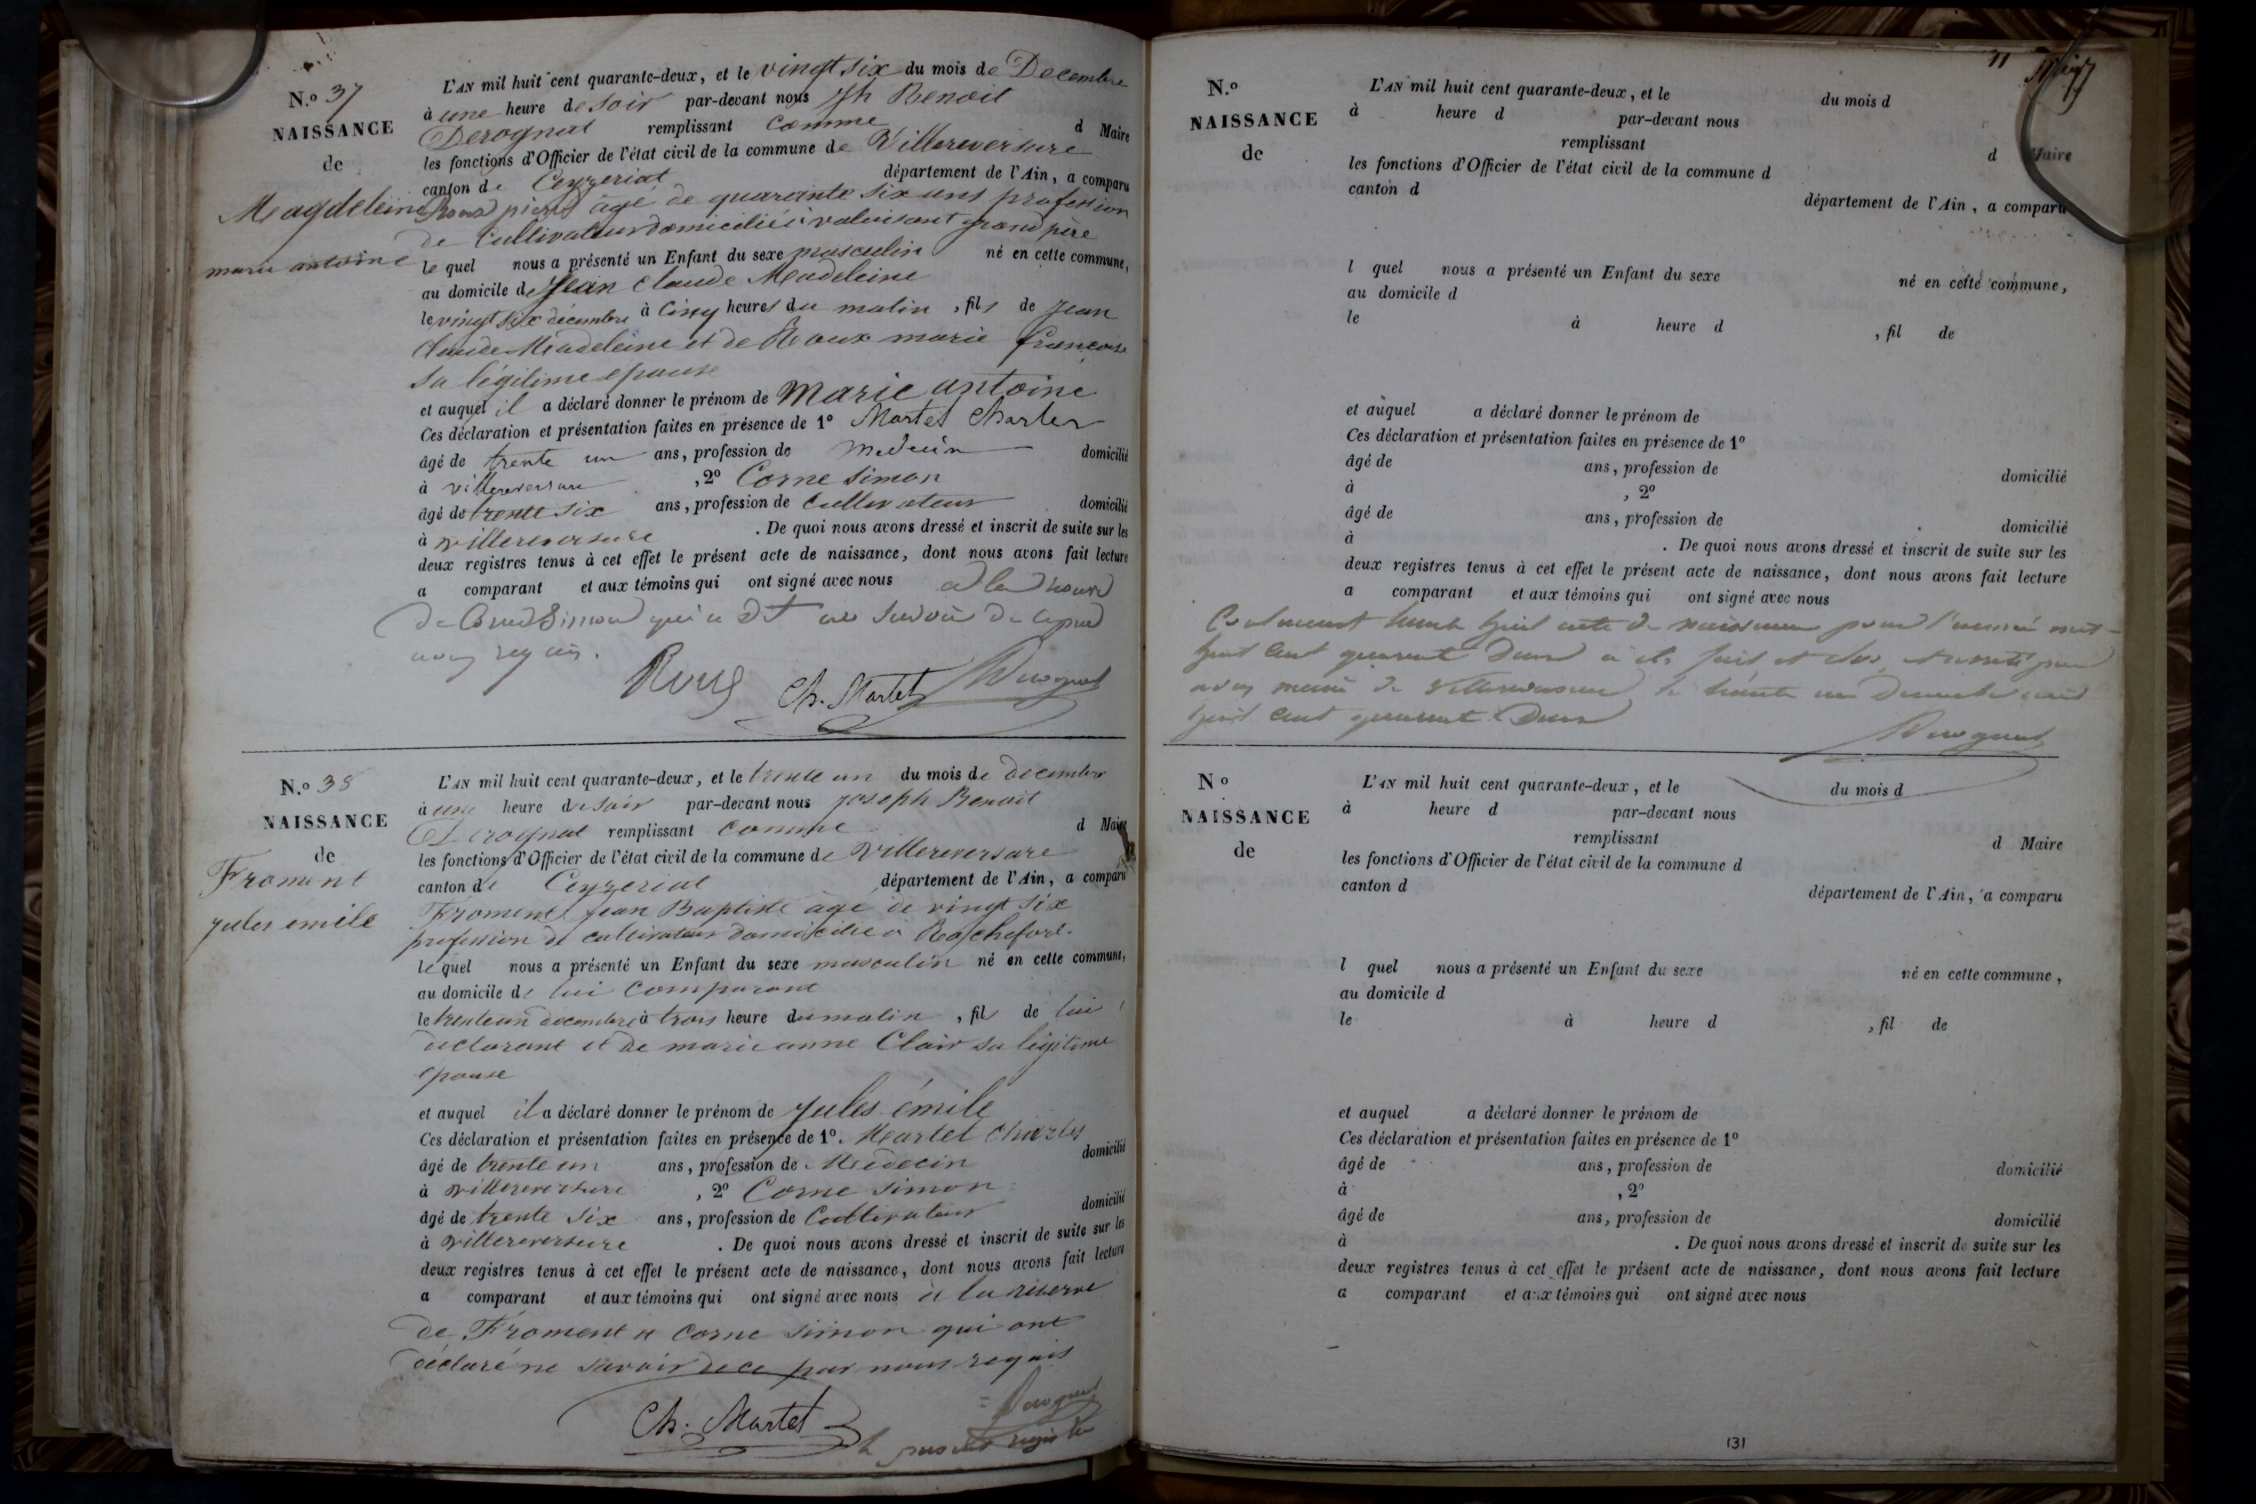 N.o 37
NAISSANCE
de
Magdeleine
marie antoine
L'AN mil huit cent quarante-deux, et le vingt six du mois de Decembre
à une heure de soir par-devant nous Jh Benoit
Derognat remplissant comme d Maire
les fonctions d'Officier de l'état civil de la commune de Villereversure
canton de Ceyzeriat département de l'Ain, a comparu
pierre âgé de quarante six ans profession
de Cultivateur domicilié à valuisant grand père
le quel nous a présenté un Enfant du sexe masculin né en cette commune,
au domicile de Jean Claude Madeleine
le vingt six decembre à Cinq heures du matin, fils de Jean
Claude Madeleine et de Roux marie francoise
sa légitime epouse
et auquel il a déclaré donner le prénom de Marie antoine
Ces déclaration et présentation faites en présence de 1o Martet Charles
âgé de trente un ans, profession de Medecin domicilié
à villereversure, 2o Corne Simon
âgé de trente six ans, profession de Cultivateur domicilié
à villereversure. De quoi nous avons dressé et inscrit de suite sur les
deux registres tenus à cet effet le présent acte de naissance, dont nous avons fait lecture
a comparant et aux témoins qui ont signé avec nous a la
de Corne Simon qui a dit ne savoir de ce par
nous requis.
Roux Ch. Martet Derognat
N.o 38
NAISSANCE
de
Froment
jules emile
L'AN mil huit cent quarante-deux, et le trente un du mois de decembre
à une heure du soir par-devant nous joseph Benoit
Derognat remplissant comme d Maire
les fonctions d'Officier de l'état civil de la commune de villereversure
canton de Ceyzeriat département de l'Ain, a comparu
Froment jean Baptiste âge de vingt six
profession de cultivateur domicilie à Rochefort.
le quel nous a présenté un Enfant du sexe masculin né en cette commune,
au domicile de lui comparant
le trente un decembre à trois heure du matin, fils de lui
déclarant et de marie anne Clair sa légitime
epouse
et auquel il a déclaré donner le prénom de jules émile
Ces déclaration et présentation faites en présence de 1o. Martet charles
âgé de trente un ans, profession de Medecin domicilié
à villereversure, 2o Corne simon
âgé de trente six ans, profession de Cultivateur domicilié
à villereversure. De quoi nous avons dressé et inscrit de suite sur les
deux registres tenus à cet effet le présent acte de naissance, dont nous avons fait lecture
a comparant et aux témoins qui ont signé avec nous à la réserve
de Froment et corne simon qui ont
déclaré ne savoir de ce par nous requis
Ch. Martet Derognat
11
N.o
NAISSANCE
de
L'AN mil huit cent quarante-deux, et le du mois d
à heure d par-devant nous
remplissant d Maire
les fonctions d'Officier de l'état civil de la commune d
canton d département de l'Ain, a comparu
l quel nous a présenté un Enfant du sexe né en cette commune,
au domicile d
le à heure d, fil de
et auquel a déclaré donner le prénom de
Ces déclaration et présentation faites en présence de 1o
âgé de ans, profession de domicilié
à, 2o
âgé de ans, profession de domicilié
à. De quoi nous avons dressé et inscrit de suite sur les
deux registres tenus à cet effet le présent acte de naissance, dont nous avons fait lecture
a comparant et aux témoins qui ont signé avec nous
trente huit acte de naissance pour l'année mil
huit cent quarante deux a été fait et clos, et arreté par
nous maire de Villereversure le trente un Decembre mil
huit cent quarante Deux
Derognat
No
NAISSANCE
de
L'AN mil huit cent quarante-deux, et le du mois d
à heure d par-devant nous
remplissant d Maire
les fonctions d'Officier de l'état civil de la commune d
canton d département de l'Ain, a comparu
l quel nous a présenté un Enfant du sexe né en cette commune,
au domicile d
le à heure d, fil de
et auquel a déclaré donner le prénom de
Ces déclaration et présentation faites en présence de 1o
âgé de ans, profession de domicilié
à, 2o
âgé de ans, profession de domicilié
à. De quoi nous avons dressé et inscrit de suite sur les
deux registres tenus à cet effet le présent acte de naissance, dont nous avons fait lecture
a comparant et aux témoins qui ont signé avec nous
131